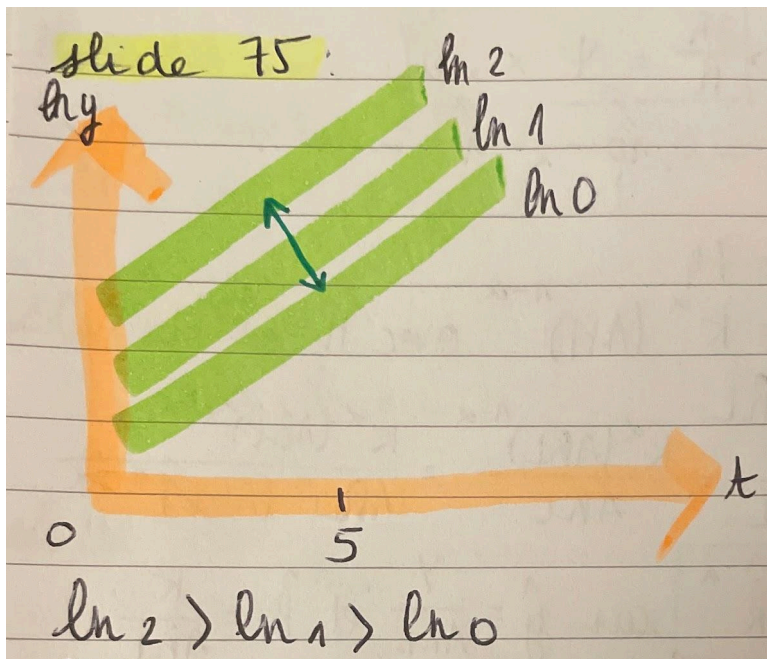 slide 75:
ln y
ln 2
ln 1
ln 0
t
0
5
ln 2 > ln 1 > ln 0